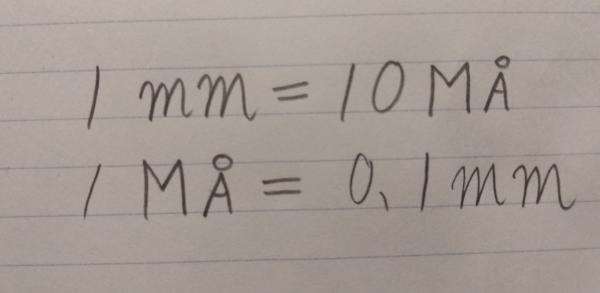 1 mm = 10 MÅ
1 MÅ = 0,1 mm